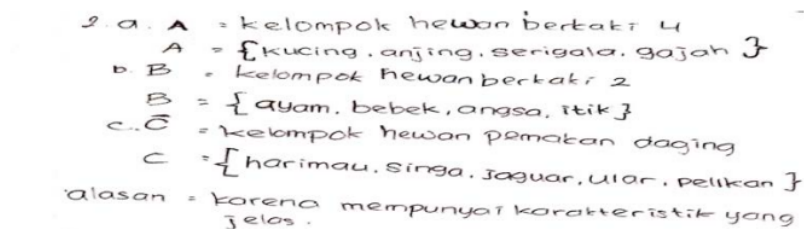 2. a. A = kelompok hewan berkaki 4
A = {kucing, anjing, serigala, gajah}
b. B = kelompok hewan berkaki 2
B = {ayam, bebek, angsa, itik}
c. C = kelompok hewan pemakan daging
C = {harimau, singa, jaguar, ular, pelikan}
alasan = karena mempunyai karakteristik yang
jelas.